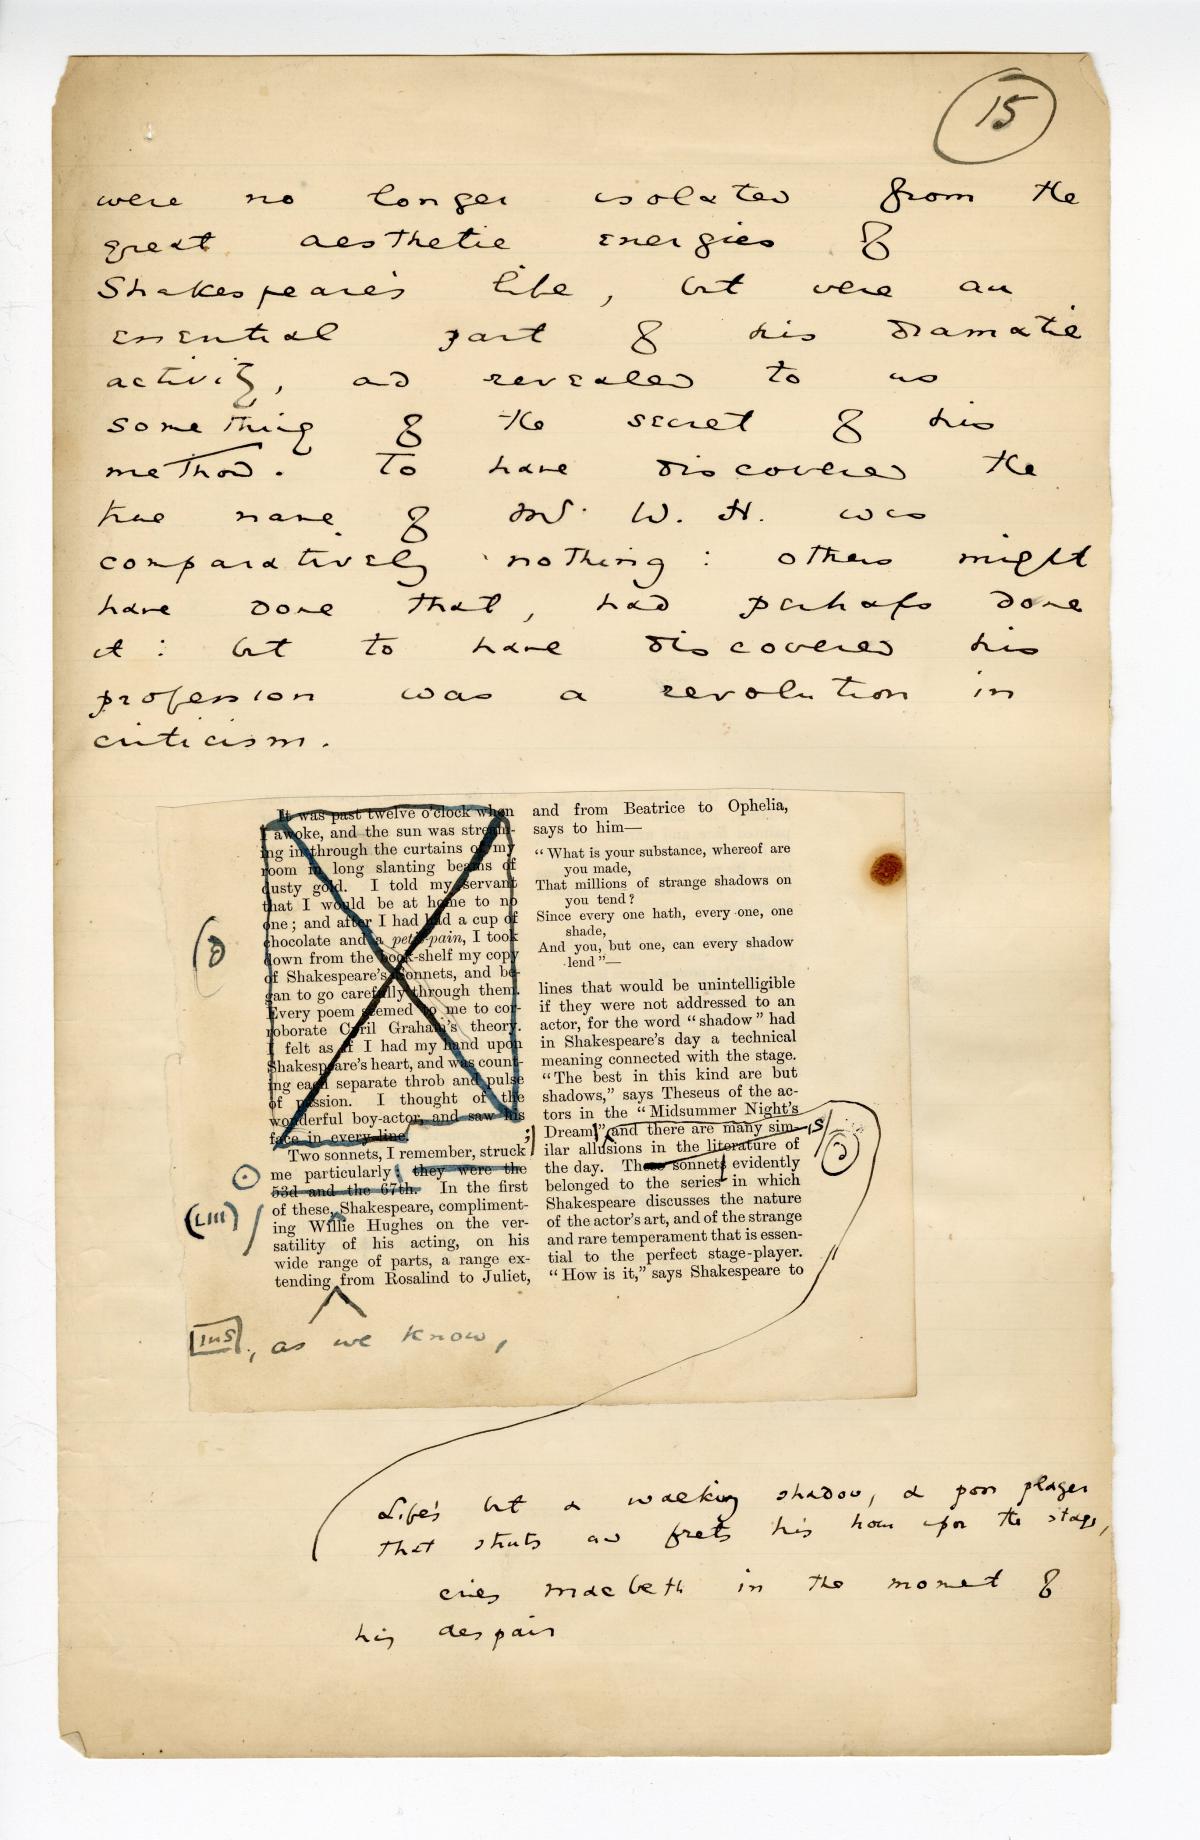 15
were no longer isolated from the
great aesthetic energies of
Shakespeare's life, but were an
essential part of his dramatic
activity, and revealed to us
something of the secret of his
method. To have discovered the
true name of Mr. W. H. was
comparatively nothing: others might
have done that, had perhaps done
it: but to have discovered his
profession was a revolution in
criticism.
It was past twelve o'clock when
I awoke, and the sun was stream-
ing in through the curtains of my
room in long slanting beams of
dusty gold. I told my servant
that I would be at home to no
one; and after I had had a cup of
chocolate and a petit-pain, I took
down from the book-shelf my copy
of Shakespeare's Sonnets, and be-
gan to go carefully through them.
Every poem seemed to me to cor-
roborate Cyril Graham's theory.
I felt as if I had my hand upon
Shakespeare's heart, and was count-
ing each separate throb and pulse
of passion. I thought of the
wonderful boy-actor, and saw his
face in every line.
Two sonnets, I remember, struck
me particularly: they were the
53d and the 67th. In the first
(LIII)
of these, Shakespeare, compliment-
ing Willie Hughes on the ver-
satility of his acting, on his
wide range of parts, a range ex-
tending from Rosalind to Juliet,
INS , as we know,
and from Beatrice to Ophelia,
says to him—
"What is your substance, whereof are
you made,
That millions of strange shadows on
you tend?
Since every one hath, every one, one
shade,
And you, but one, can every shadow
lend"—
lines that would be unintelligible
if they were not addressed to an
actor, for the word "shadow" had
in Shakespeare's day a technical
meaning connected with the stage.
"The best in this kind are but
shadows," says Theseus of the ac-
tors in the "Midsummer Night's
Dream," and there are many sim-
ilar allusions in the literature of
the day. These sonnets evidently
belonged to the series in which
Shakespeare discusses the nature
of the actor's art, and of the strange
and rare temperament that is essen-
tial to the perfect stage-player.
"How is it," says Shakespeare to
Life's but a walking shadow, a poor player
that struts and frets his hour upon the stage,
cries Macbeth in the moment of
his despair